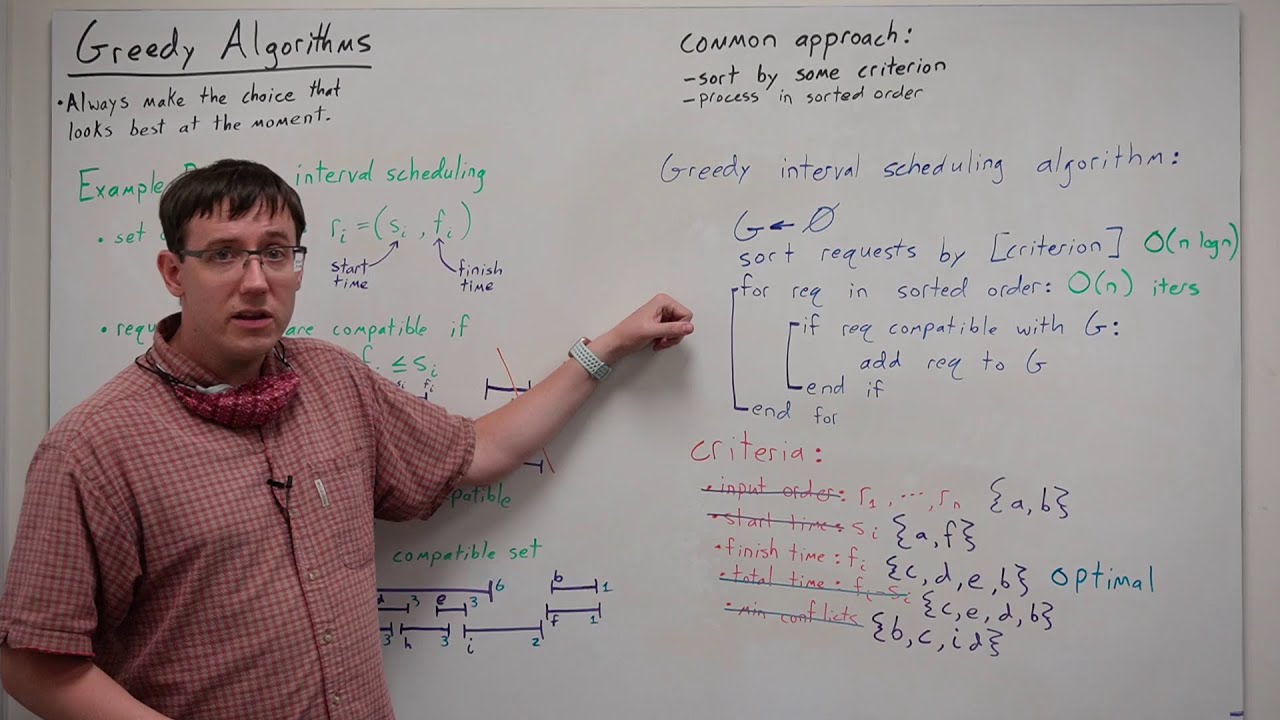 Greedy Algorithms
• Always make the choice that
looks best at the moment.
Example interval scheduling
• set rᵢ = (sᵢ, fᵢ)
start
time
finish
time
• are compatible if
≤ sᵢ
sᵢ fᵢ
compatible set
6
b 1
3 e 3
f 1
3 h 3 i 2
common approach:
- sort by some criterion
- process in sorted order
Greedy interval scheduling algorithm:
G ← ∅
sort requests by [criterion] O(n log n)
for req in sorted order: O(n) iters
if req compatible with G:
add req to G
end if
end for
criteria:
• input order: r₁, ..., rₙ {a, b}
• start time: sᵢ {a, f}
• finish time: fᵢ {c, d, e, b} optimal
• total time: fᵢ-sᵢ {c, e, d, b}
• min conflicts {b, c, i, d}